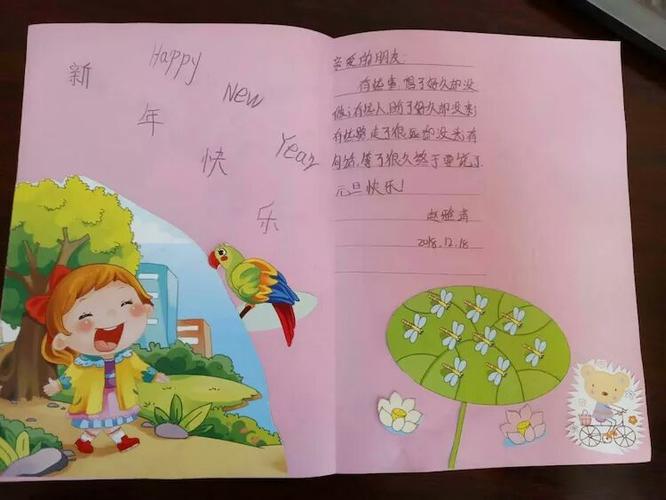 新年快乐
Happy New Year
亲爱的朋友:
有些事,想了好久却没
做;有些人,盼了好久却没来;
有些路走了很远却没 有
句话,等了很久终于要说了
元旦快乐!
赵
2018.12.18